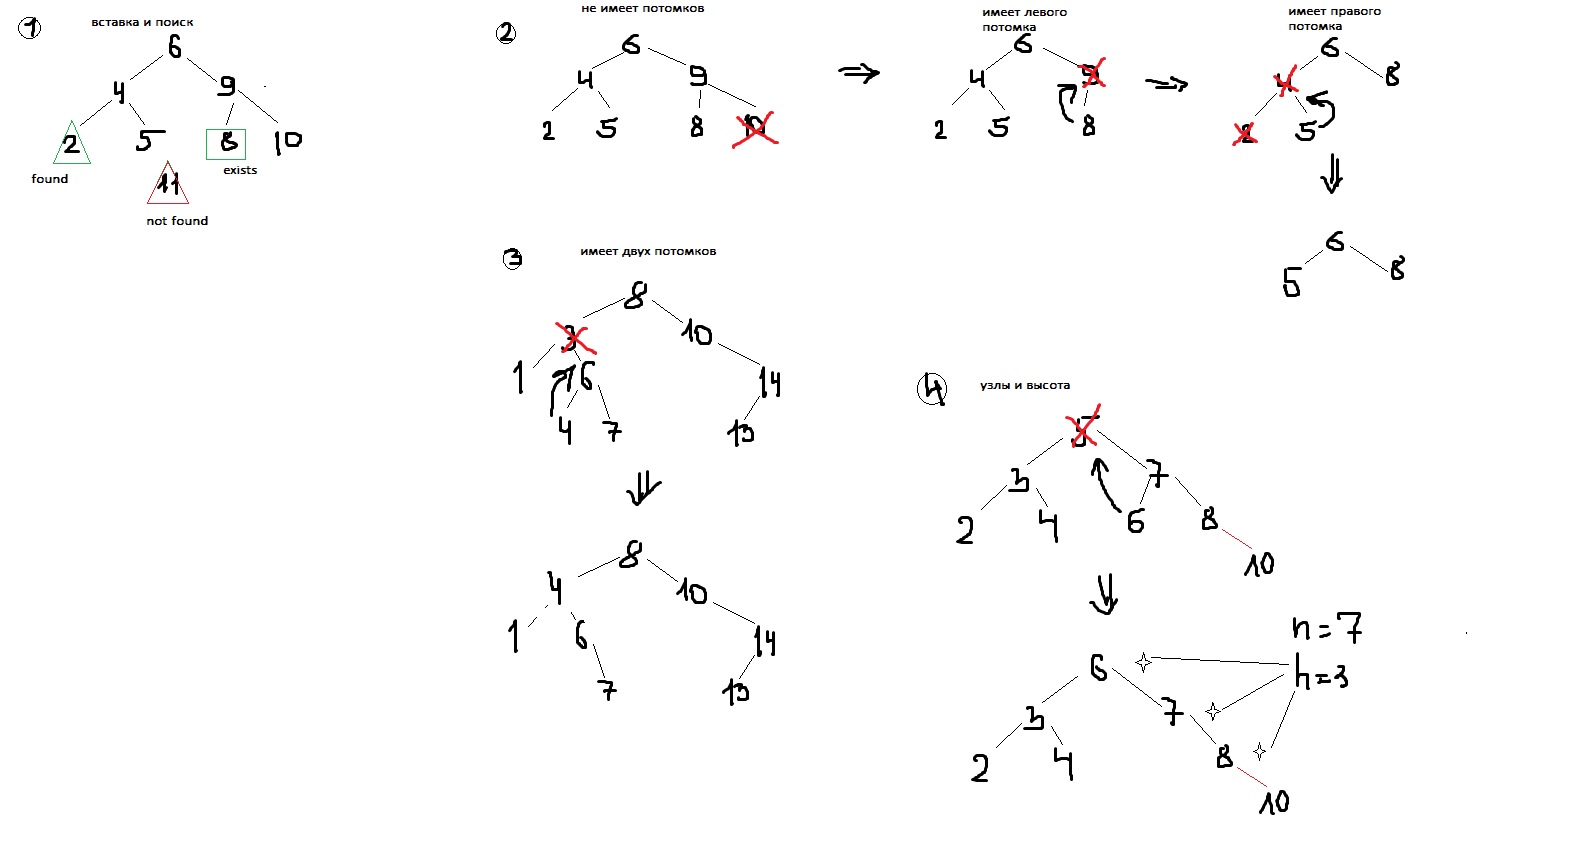 1
вставка и поиск
6
4 9
2 5 8 10
found
exists
11
not found
2
не имеет потомков
6
4 9
2 5 8 10
имеет левого
потомка
6
4 9
2 5 8
имеет правого
потомка
6
4 8
2 5
6
5 8
3
имеет двух потомков
8
3 10
1 6 14
4 7 13
8
4 10
1 6 14
7 13
4
узлы и высота
5
3 7
2 4 6 8
10
n=7
h=3
6
3 7
2 4 8
10